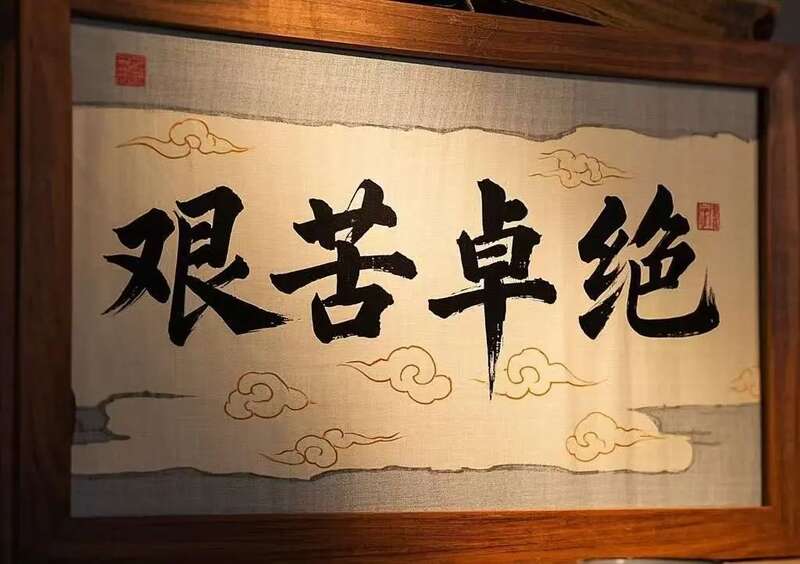 艰苦卓绝